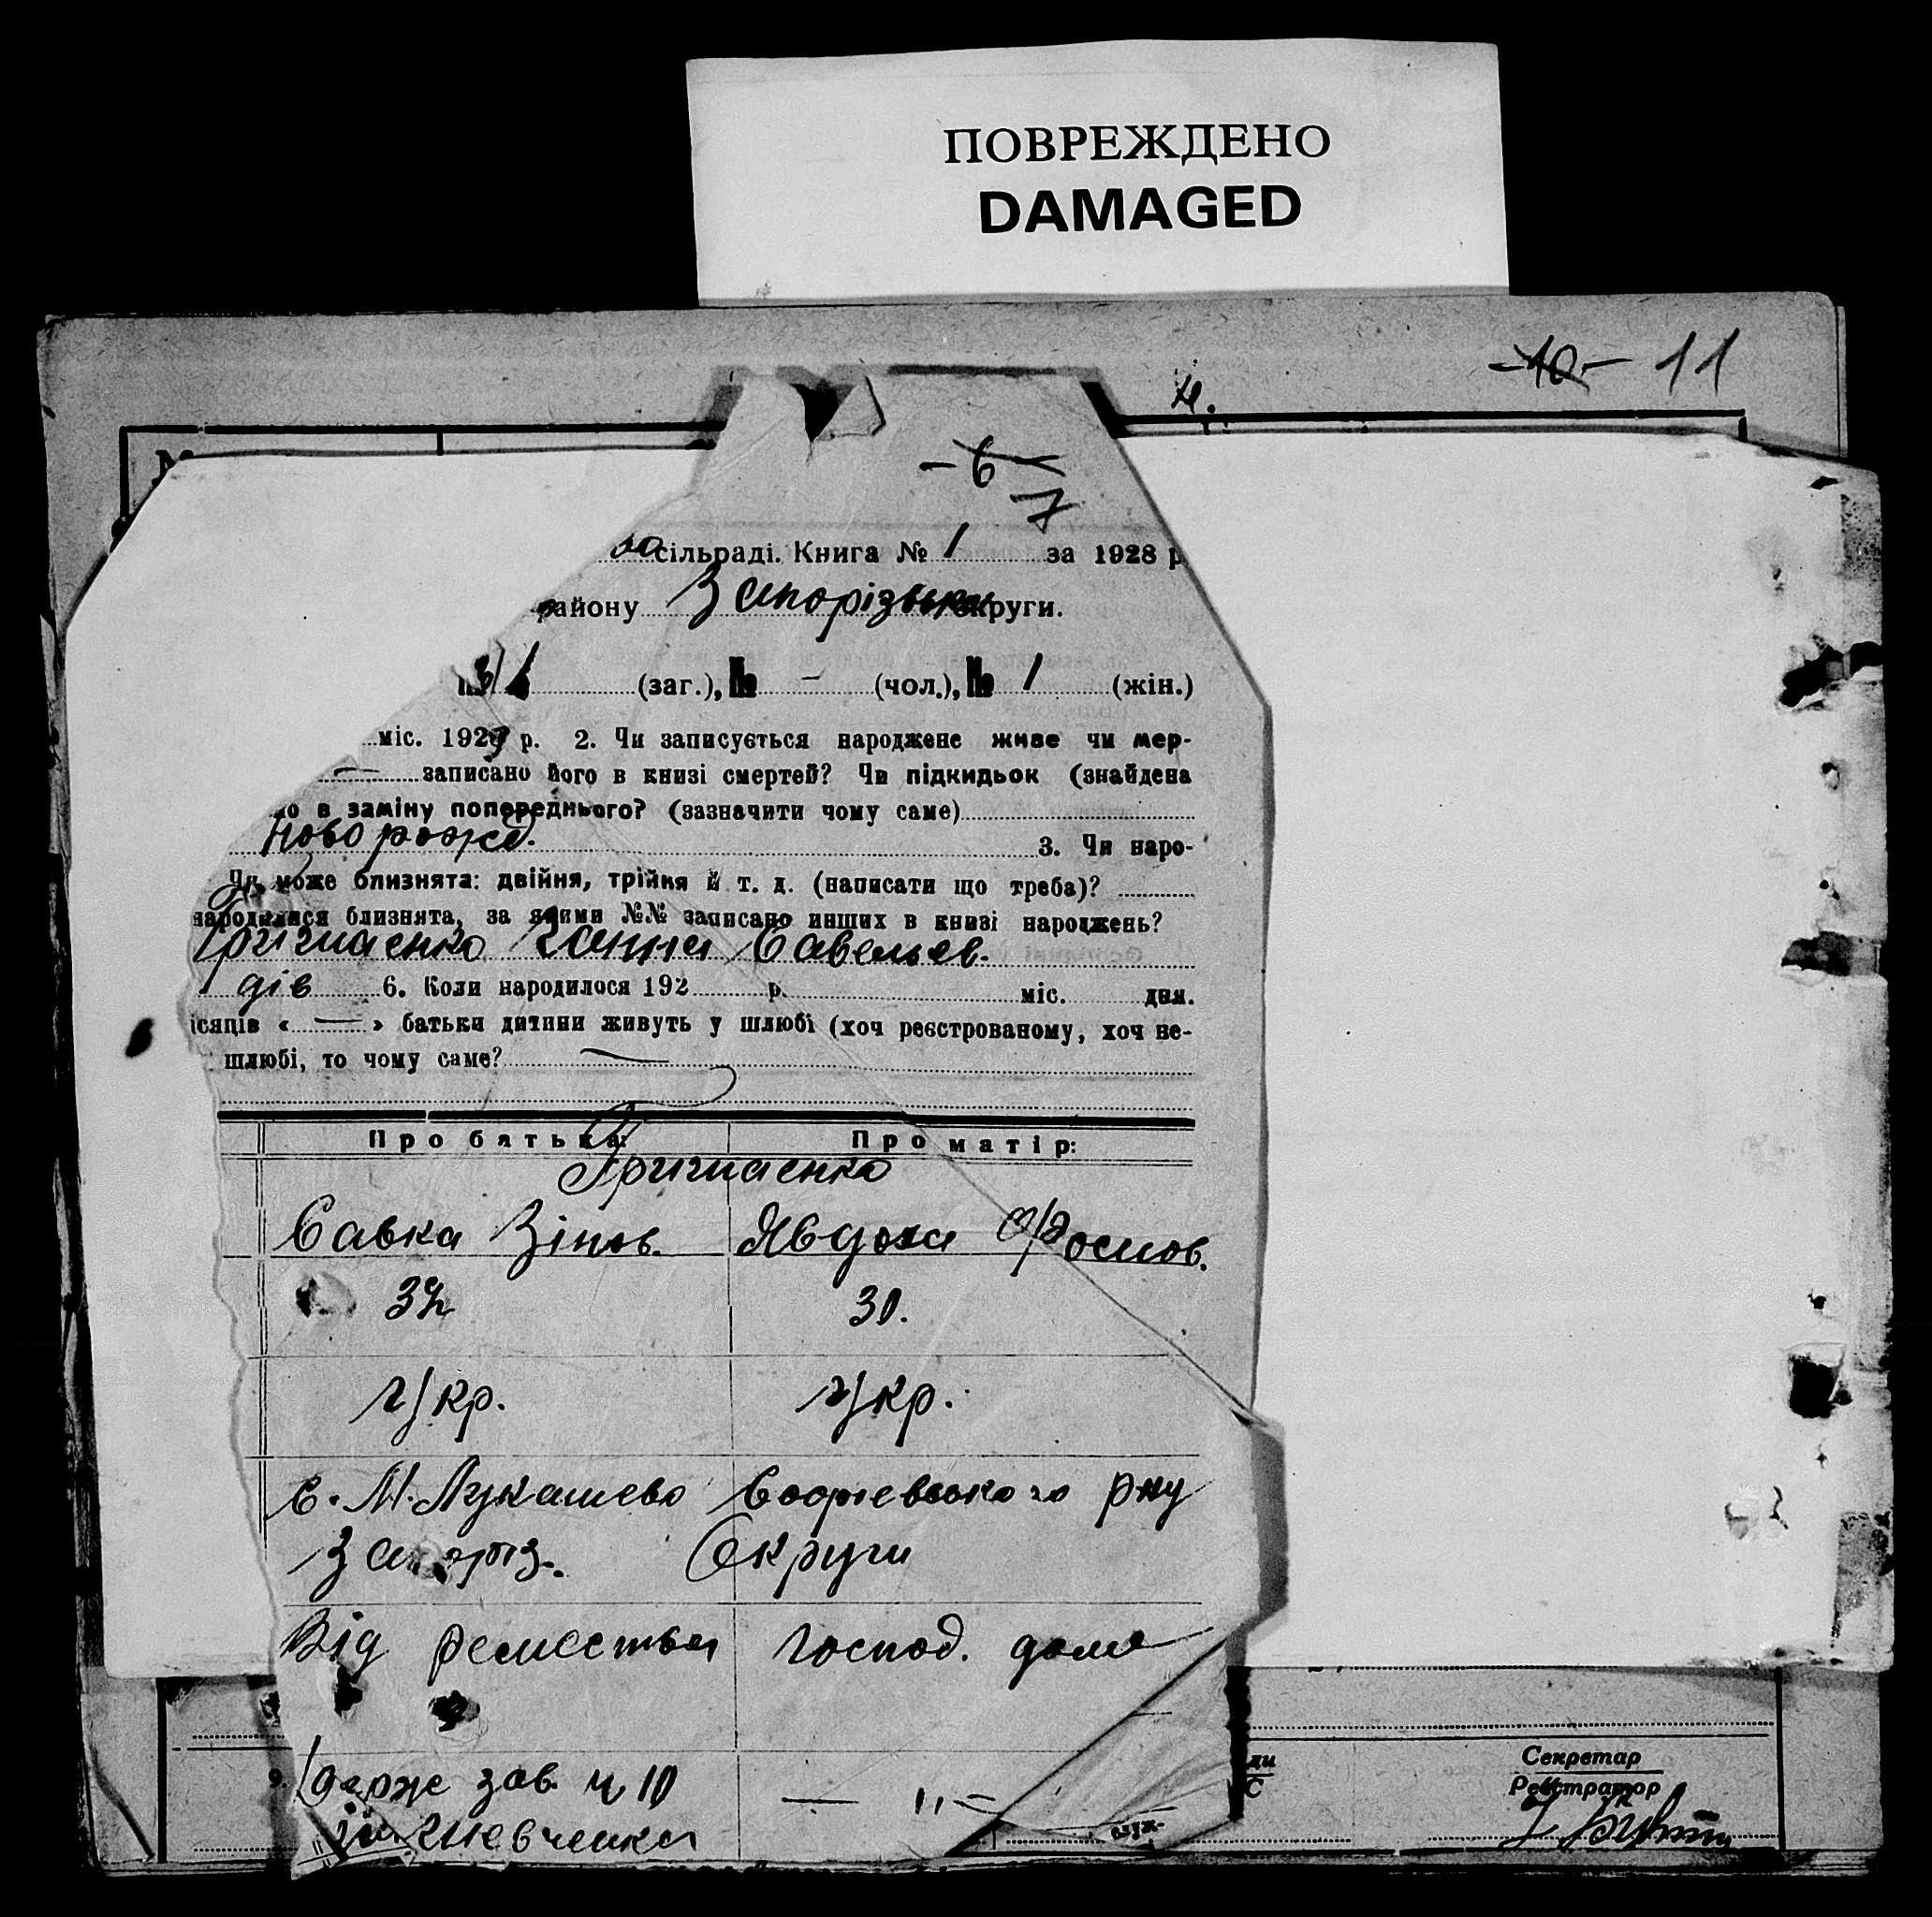 ПОВРЕЖДЕНО
DAMAGED
-10- 11
-6-
7
сільраді. Книга № 1 за 1928 р
району Запорізької округи.
(заг.), № - (чол.), № 1 (жін.)
міс. 1929 р. 2. Чи записується народжене живе чи мер-
— записано його в книзі смертей? Чи підкидьок (знайдена
в заміну попереднього? (зазначити чому саме)
Новорожд. 3. Чи наро-
Чи може близнята: двійня, трійня й т. д. (написати що треба)?
народилися близнята, за якими №№ записано инших в книзі народжень?
Григшаенко Ганна Савельев.
дів 6. Коли народилося 192 р. міс. дня.
ісяців « — » батьки дитини живуть у шлюбі (хоч реєстрованому, хоч не-
шлюбі, то чому саме? —
Про батька: Про матір:
Григшаенко
Савка Зінов. Явдоха
32 30.
Укр. Укр.
с. М. Лукашево Софіевського рну
Запоріз. Округи
Від ремества господ. дома
Держ зав. ч 10 — ,, —
ім. Шевченка
Секретар
Реєстратор